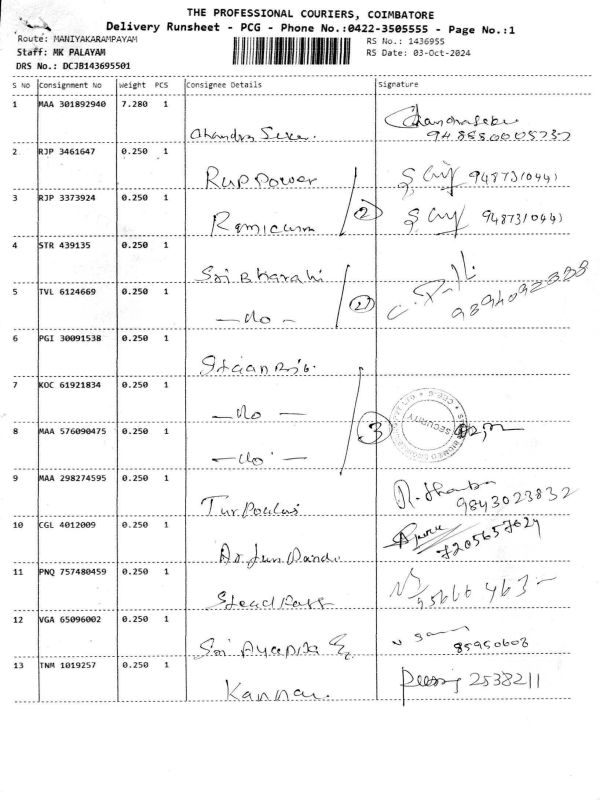 THE PROFESSIONAL COURIERS, COIMBATORE
Delivery Runsheet - PCG - Phone No.:0422-3505555 - Page No.:1
Route: MANIYAKARAMPAYAM RS No.: 1436955
Staff: MK PALAYAM RS Date: 03-Oct-2024
DRS No.: DCJB143695501
S No Consignment No Weight PCS Consignee Details Signature
1 MAA 301892940 7.280 1
Chandra Seker.
2 RJP 3461647 0.250 1
Rup Power 9487310441
3 RJP 3373924 0.250 1
Remicum 9487310441
2
4 STR 439135 0.250 1
Sri Bharahi
5 TVL 6124669 0.250 1
— do —
2
6 PGI 30091538 0.250 1
7 KOC 61921834 0.250 1
— do —
8 MAA 576090475 0.250 1
— do —
3
SECURITY
9 MAA 298274595 0.250 1
9843023832
10 CGL 4012009 0.250 1
7205657624
11 PNQ 757480459 0.250 1
12 VGA 65096002 0.250 1
Sri
85950608
13 TNM 1019257 0.250 1
Kannan. 2538211